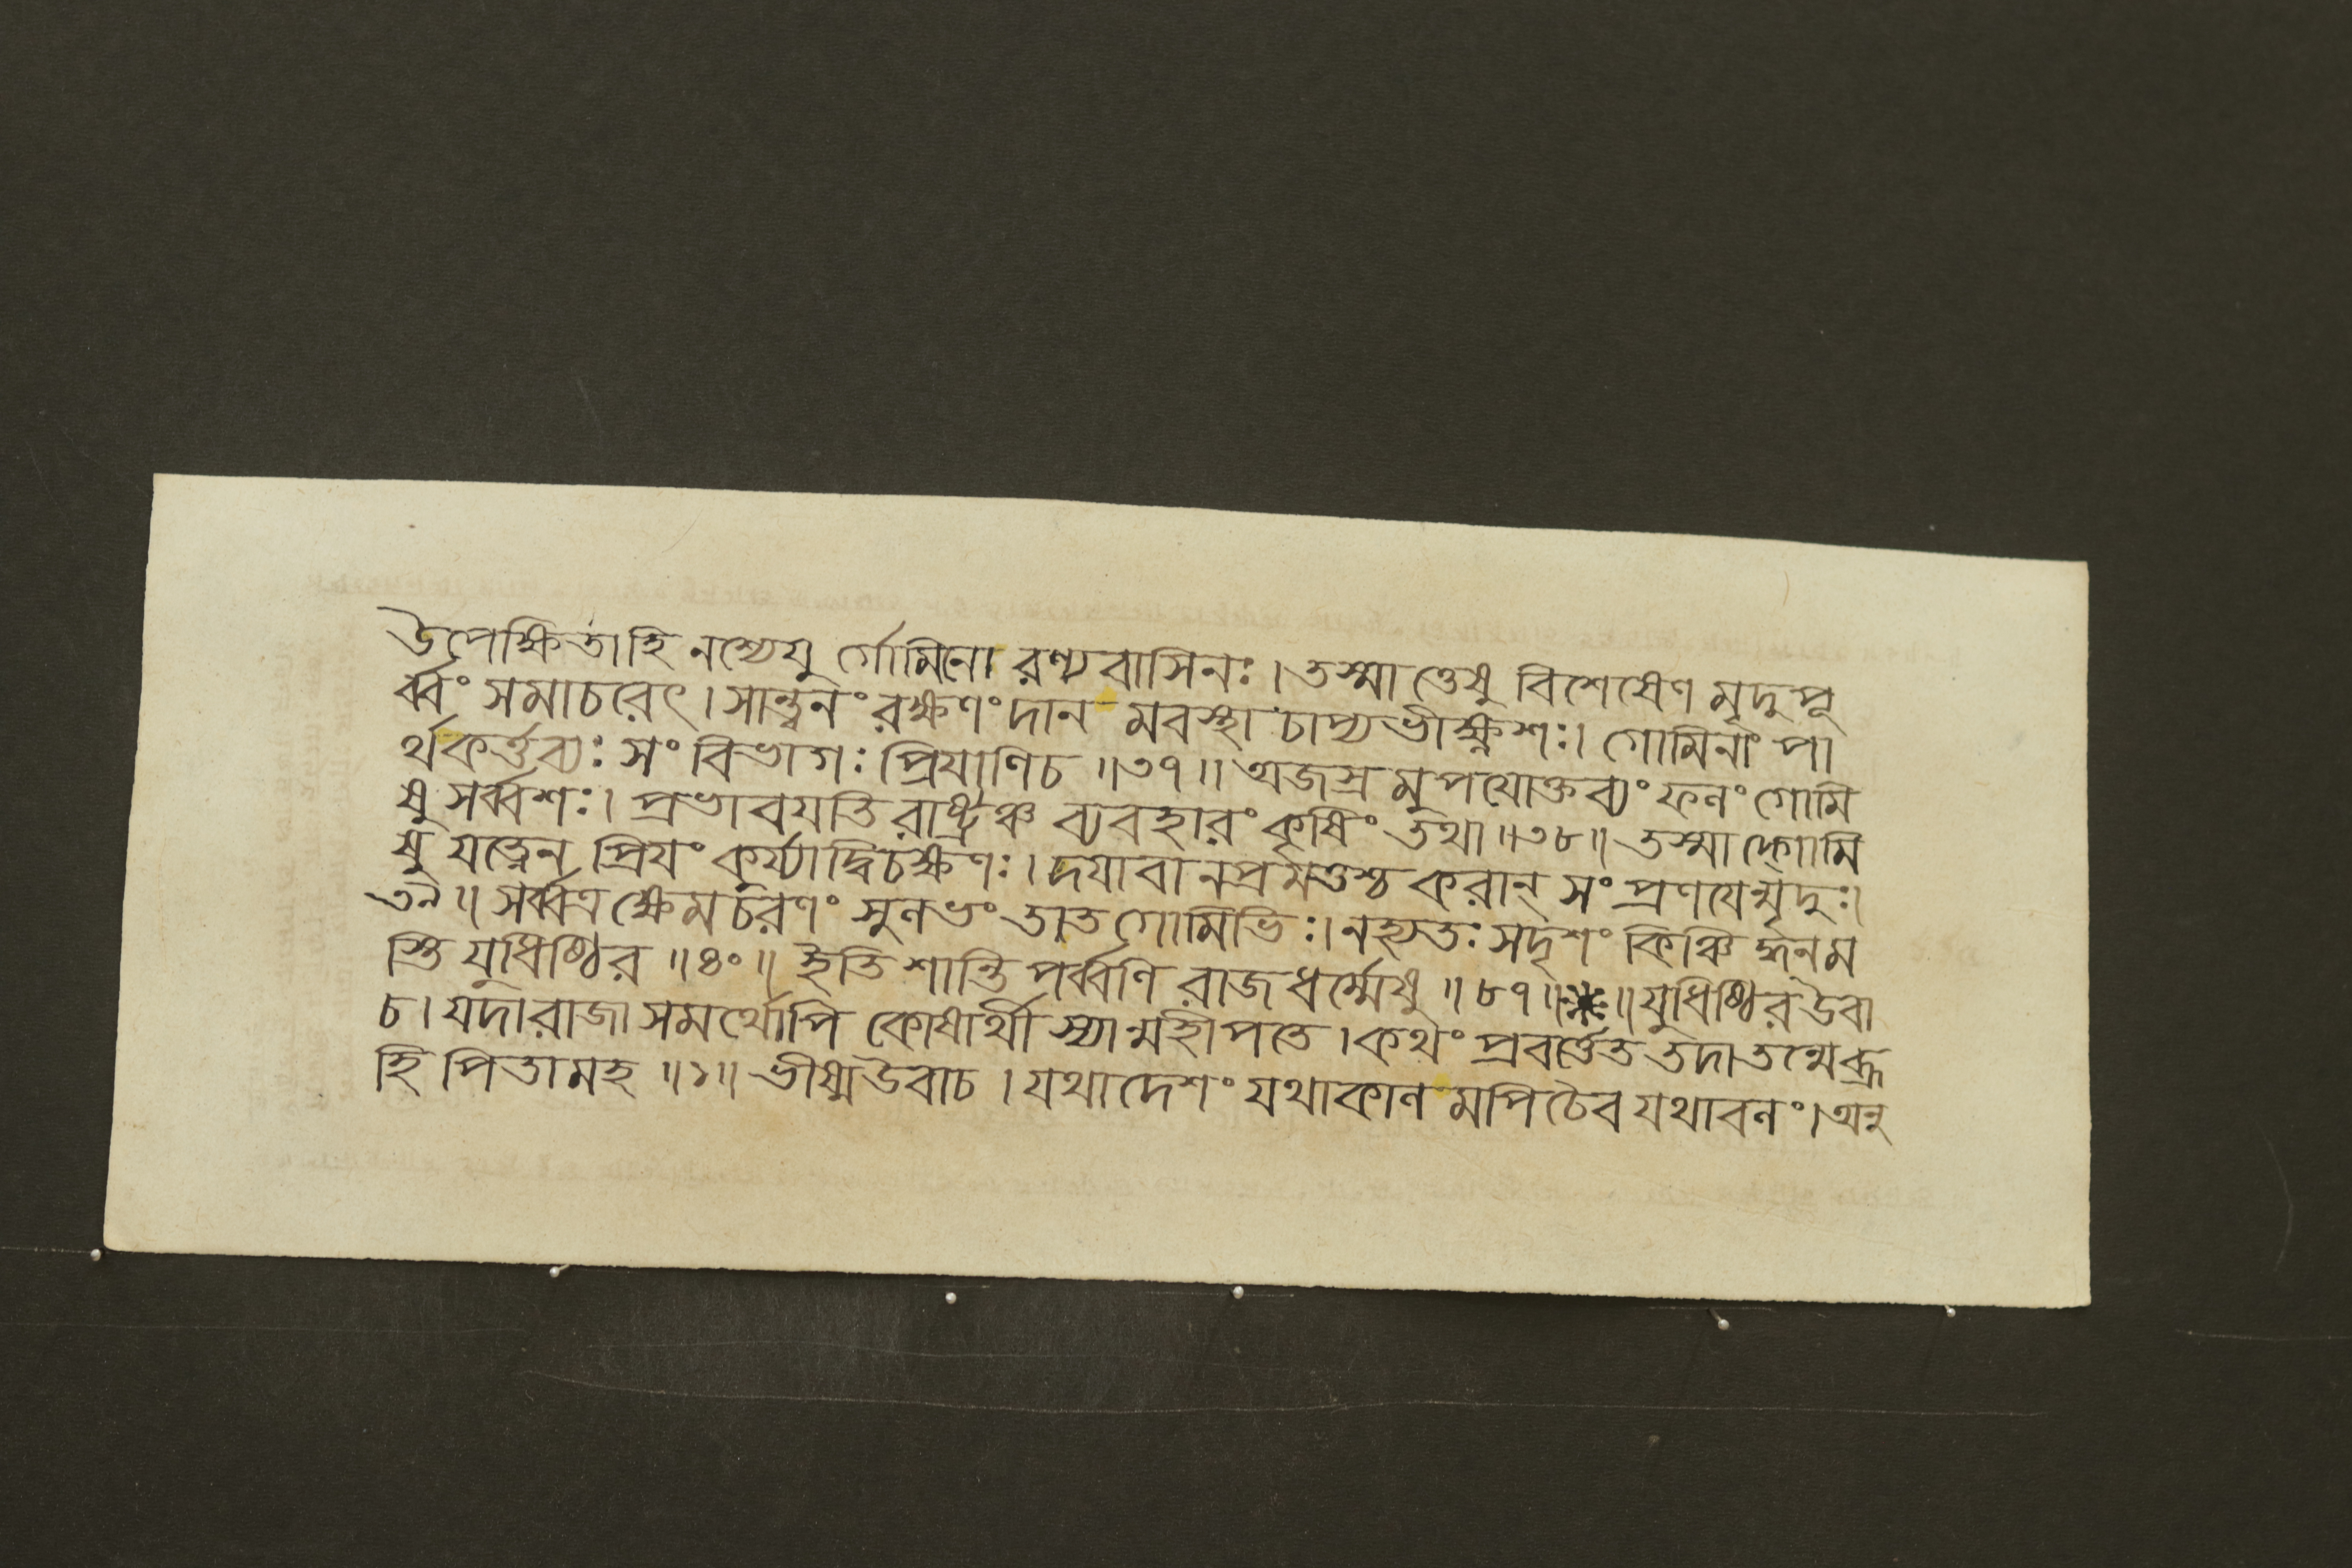 উপেক্ষিতাহি নশ্যেযু র্গোমিনো রণ্যবাসিনঃ। তস্মাত্তেষু বিশেষেণ মৃদুপূ
র্ব্বং সমাচরেৎ। সান্ত্বনং রক্ষণং দান মবস্থা চাপ্যভীক্ষ্ণশঃ। গোমিনাং পা
র্থকর্ত্তব্যঃ সং বিভাগঃ প্রিযাণিচ ॥৩৭॥ অজস্র মুপযোক্তব্যং ফলং গোমি
ষু সর্ব্বশঃ। প্রভাবযতি রাষ্ট্রঞ্চ ব্যবহারং কৃষিং তথা॥৩৮॥ তস্মাদ্গোমি
ষু যত্নেন প্রিযং কুর্য্যাদ্বিচক্ষণঃ। দযাবানপ্রমত্তশ্চ করান্ সং প্রণযেন্মৃদুঃ।
৩৯॥ সর্ব্বত্র ক্ষেমচরণং সুলভং তাত গোমিভিঃ। নহ্যতঃ সদৃশং কিঞ্চিদ্ধনম
স্তি যুধিষ্ঠির ॥৪০॥ ইতি শান্তিপর্ব্বণি রাজধর্ম্মেষু ॥৮৭॥*॥ যুধিষ্ঠির উবা
চ। যদা রাজা সমর্থোপি কোষার্থী স্যান্মহীপতে। কথং প্রবর্ত্তেত তদা তন্মেব্রূ
হি পিতামহ ॥১॥ ভীষ্মউবাচ। যথাদেশং যথাকাল মপিচৈব যথাবলং। অনু